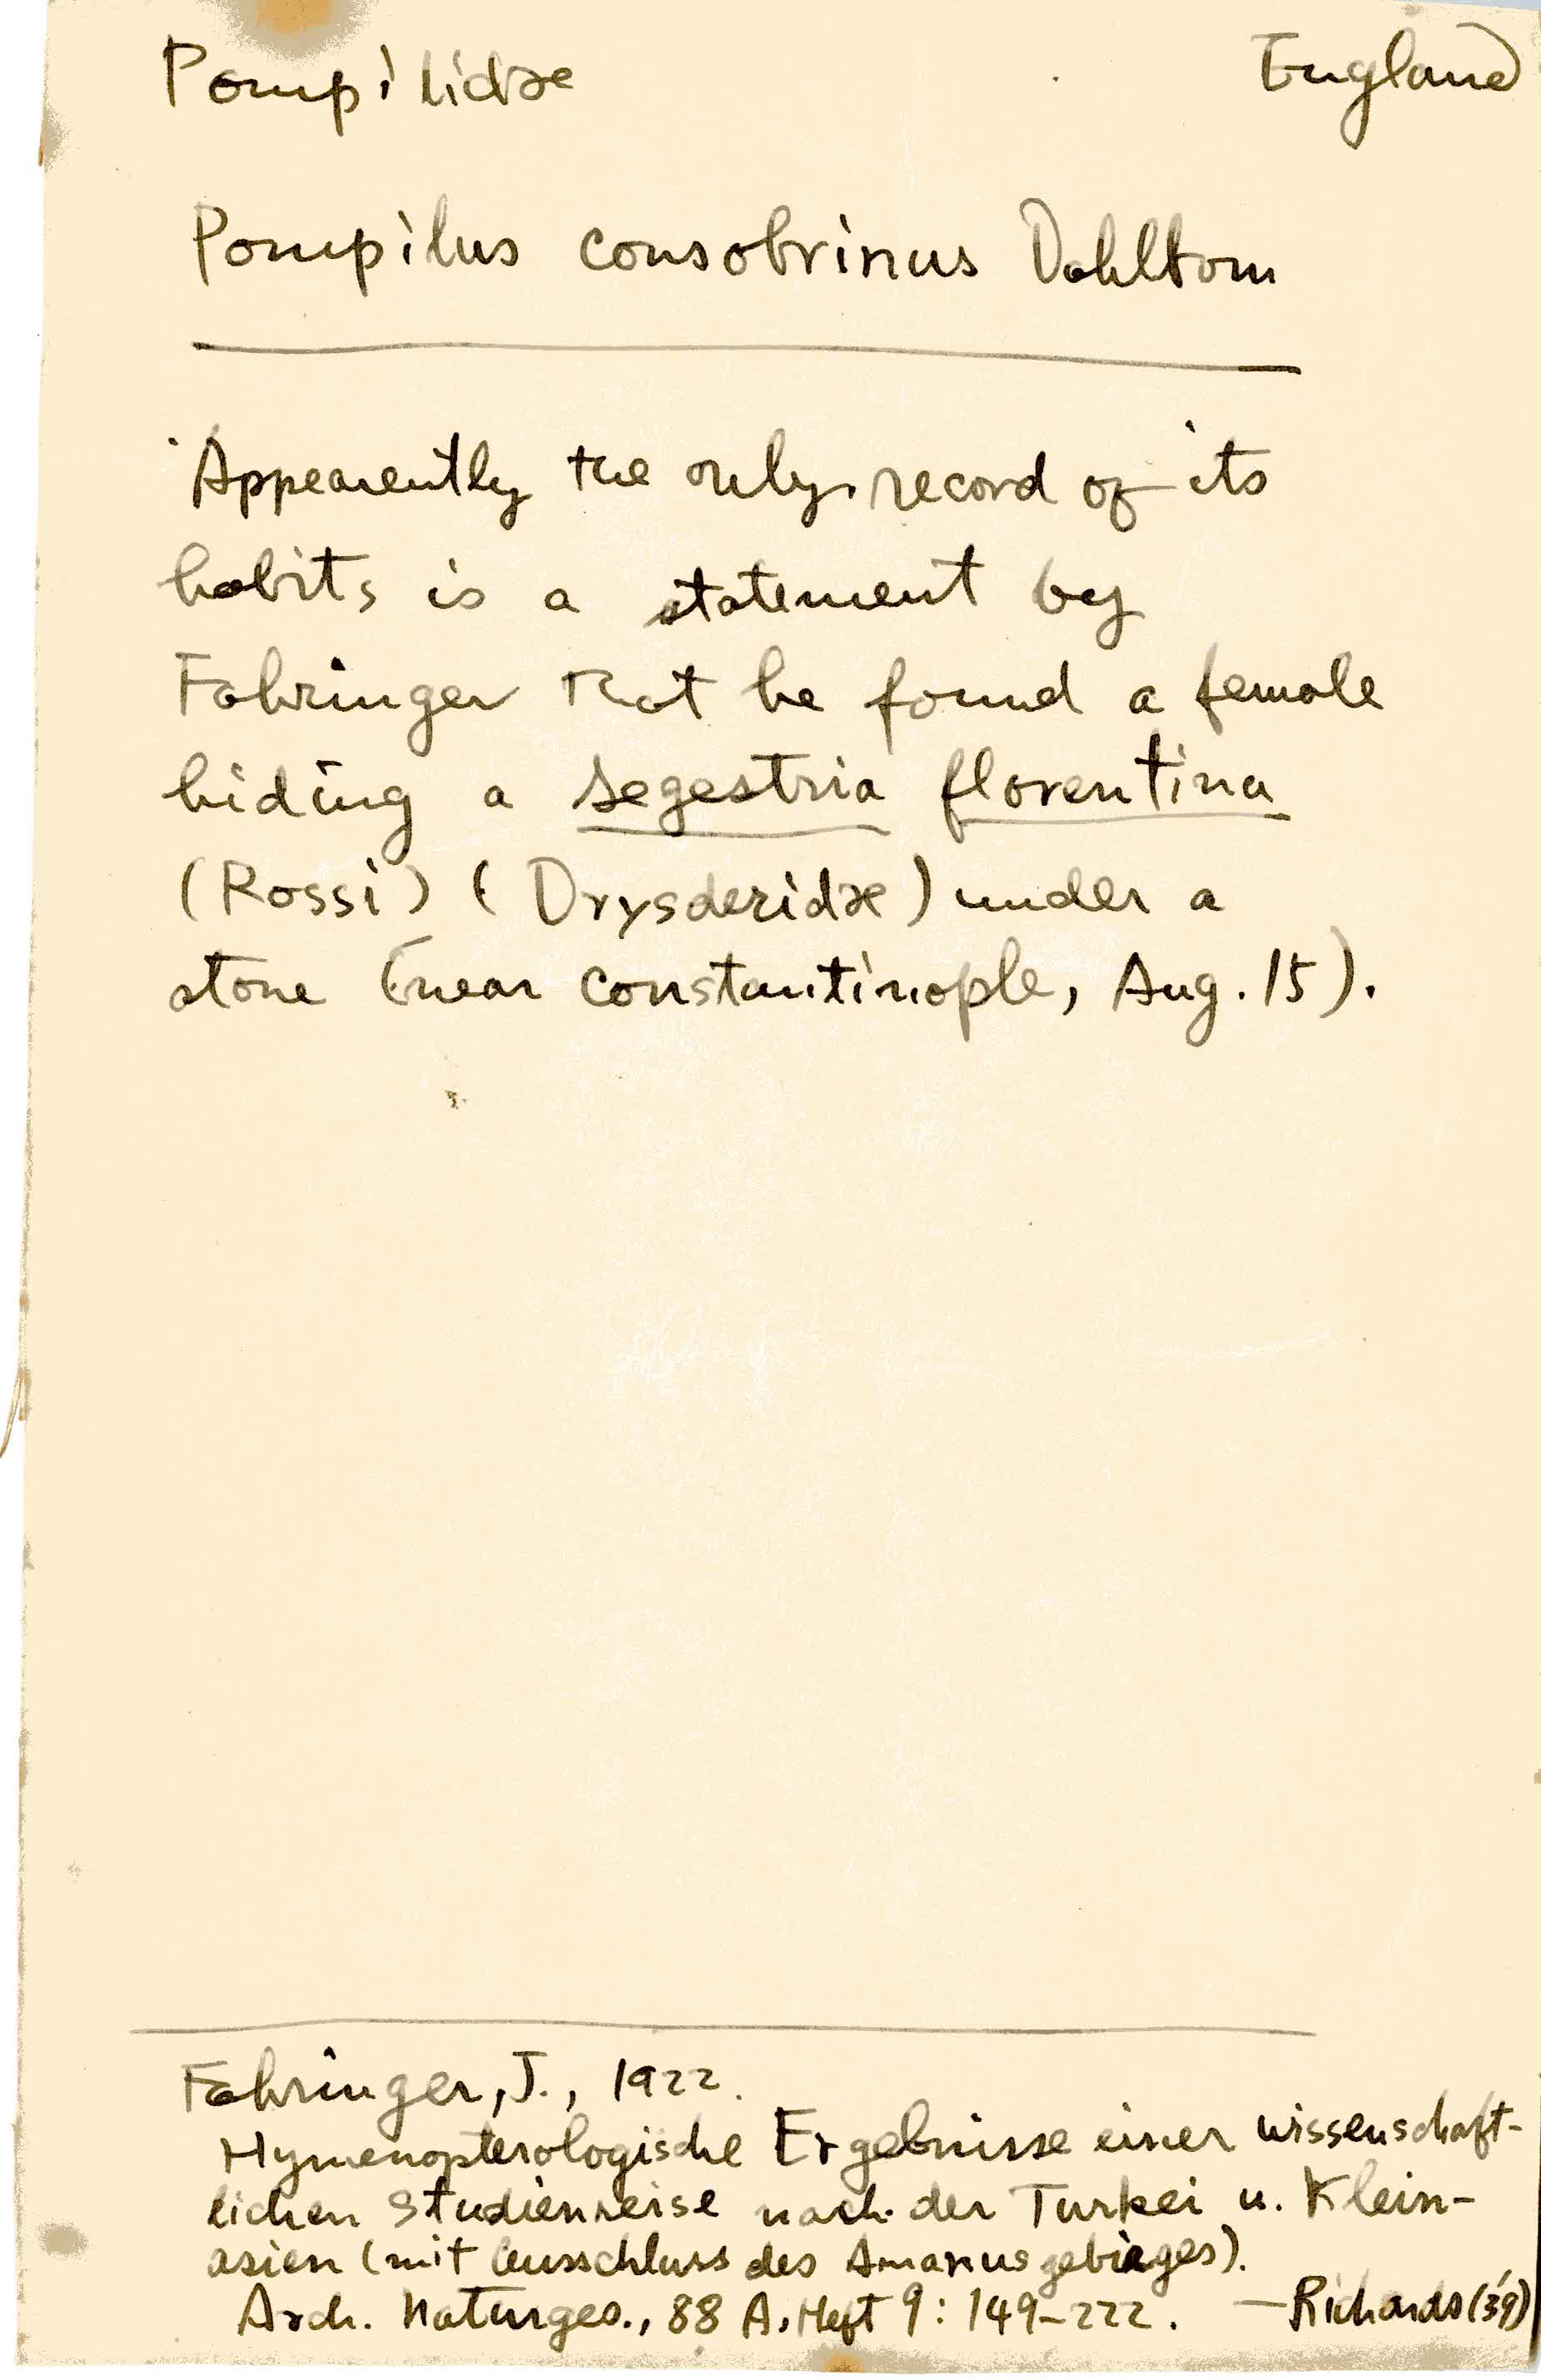 Pompilidæ England
Pompilus consobrinus Dahlbom
Appearently the only record of its
habits is a statement by
Fahringer that he found a female
hiding a Segestria florentina
(Rossi) (Drysderidæ) under a
stone (near Constantinople, Aug. 15).
Fahringer, J., 1922.
Hymenopterologische Ergebnisse einer wissenschaft-
lichen Studienreise nach der Turkei u. Klein-
asien (mit Ausschluss des Amanusgebirges).
Arch. Naturges., 88 A, Heft 9: 149-222. —Richards ('39)